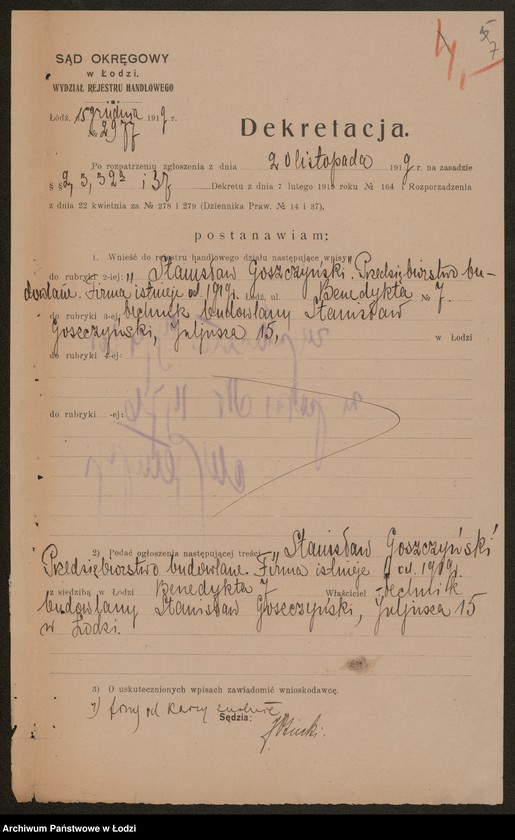 SĄD OKRĘGOWY
w Łodzi.
WYDZIAŁ REJESTRU HANDLOWEGO
Łódź, 15 grudnia 1919 r.
Dekretacja.
Po rozpatrzeniu zgłoszenia z dnia 20 listopada 1919 r. na zasadzie
§ § 2, 3, 32 i 37 Dekretu z dnia 7 lutego 1919 roku № 164 i Rozporządzenia
z dnia 22 kwietnia za № 278 i 279 (Dziennika Praw. № 14 i 37),
postanawiam:
1. Wnieść do rejestru handlowego działu następujące wpisy
do rubryki 2-iej: "Stanisław Goszczyński. Przedsiębiorstwo bu-
dowlane. Firma istnieje od 1919 r. Łódź, ul. Benedykta № 7.
do rubryki 3-ej: technik budowlany Stanisław
Goszczyński, Juljusza 15, w Łodzi
do rubryki 4-ej:
do rubryki -ej:
2) Podać ogłoszenia następującej treści: Stanisław Goszczyński
Przedsiębiorstwo budowlane. Firma istnieje od 1919 r.
z siedzibą w Łodzi Benedykta 7 Właściciel technik
budowlany Stanisław Goszczyński, Juljusza 15
w Łodzi.
3) O uskutecznionych wpisach zawiadomić wnioskodawcę.
od kary
Sędzia:
Archiwum Państwowe w Łodzi